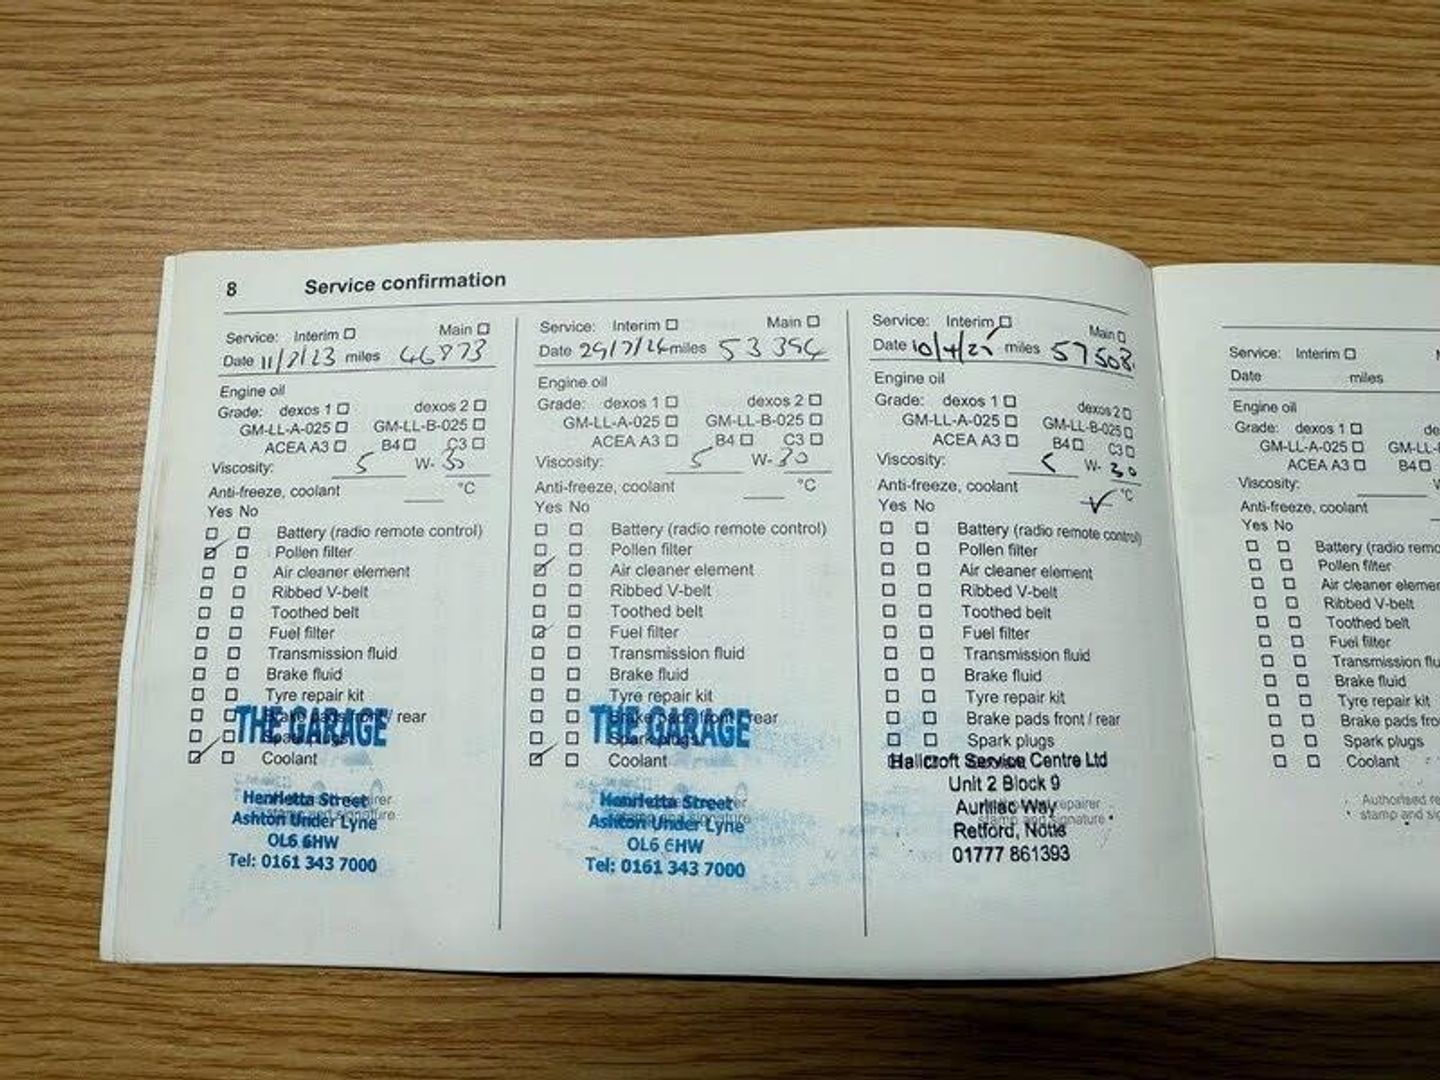 8 Service confirmation
Service: Interim ☐ Main ☐
Date 11/7/23 miles 46873
Engine oil
Grade: dexos 1 ☐ dexos 2 ☐
GM-LL-A-025 ☐ GM-LL-B-025 ☐
ACEA A3 ☐ B4 ☐ C3 ☐
Viscosity: 5 W- 30
Anti-freeze, coolant ____ °C
Yes No
☐ ☐ Battery (radio remote control)
☑ ☐ Pollen filter
☐ ☐ Air cleaner element
☐ ☐ Ribbed V-belt
☐ ☐ Toothed belt
☐ ☐ Fuel filter
☐ ☐ Transmission fluid
☐ ☐ Brake fluid
☐ ☐ Tyre repair kit
☐ ☐ Brake pads front / rear
☐ ☐ Spark plugs
☑ ☐ Coolant
THE GARAGE
Henrietta Street
Ashton Under Lyne
OL6 6HW
Tel: 0161 343 7000
repairer
stamp and signature
Service: Interim ☐ Main ☐
Date 29/7/24 miles 53394
Engine oil
Grade: dexos 1 ☐ dexos 2 ☐
GM-LL-A-025 ☐ GM-LL-B-025 ☐
ACEA A3 ☐ B4 ☐ C3 ☐
Viscosity: 5 W- 30
Anti-freeze, coolant ____ °C
Yes No
☐ ☐ Battery (radio remote control)
☐ ☐ Pollen filter
☑ ☐ Air cleaner element
☐ ☐ Ribbed V-belt
☐ ☐ Toothed belt
☑ ☐ Fuel filter
☐ ☐ Transmission fluid
☐ ☐ Brake fluid
☐ ☐ Tyre repair kit
☐ ☐ Brake pads front / rear
☐ ☐ Spark plugs
☑ ☐ Coolant
THE GARAGE
Henrietta Street
Ashton Under Lyne
OL6 6HW
Tel: 0161 343 7000
Service: Interim ☑ Main ☐
Date 10/4/25 miles 57508
Engine oil
Grade: dexos 1 ☐ dexos 2 ☐
GM-LL-A-025 ☐ GM-LL-B-025 ☐
ACEA A3 ☐ B4 ☐ C3 ☐
Viscosity: 5 W- 30
Anti-freeze, coolant ✓ °C
Yes No
☐ ☐ Battery (radio remote control)
☐ ☐ Pollen filter
☐ ☐ Air cleaner element
☐ ☐ Ribbed V-belt
☐ ☐ Toothed belt
☐ ☐ Fuel filter
☐ ☐ Transmission fluid
☐ ☐ Brake fluid
☐ ☐ Tyre repair kit
☐ ☐ Brake pads front / rear
☐ ☐ Spark plugs
Hallcroft Service Centre Ltd
Unit 2 Block 9
Aurillac Way
repairer
stamp and signature
Retford, Notts
01777 861393
Service: Interim ☐
Date miles
Engine oil
Grade: dexos 1 ☐ de
GM-LL-A-025 ☐ GM-LL-
ACEA A3 ☐ B4 ☐
Viscosity: ____
Anti-freeze, coolant
Yes No
☐ ☐ Battery (radio remo
☐ ☐ Pollen filter
☐ ☐ Air cleaner eleme
☐ ☐ Ribbed V-belt
☐ ☐ Toothed belt
☐ ☐ Fuel filter
☐ ☐ Transmission flu
☐ ☐ Brake fluid
☐ ☐ Tyre repair kit
☐ ☐ Brake pads fro
☐ ☐ Spark plugs
☐ ☐ Coolant
Authorised re
stamp and sig